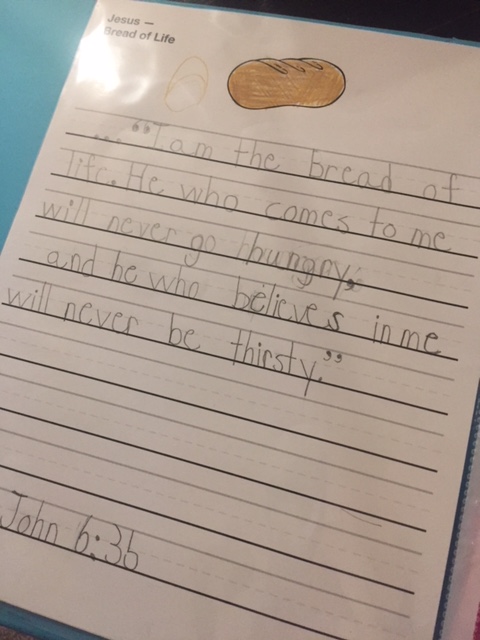 Jesus –
Bread of Life
..."I am the bread of
life. He who comes to me
will never go hungry,
and he who believes in me
will never be thirsty."
John 6:36